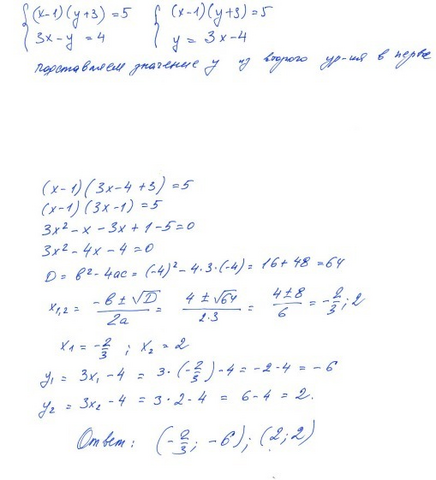 {(x-1)(y+3)=5 {(x-1)(y+3)=5
{3x-y=4 {y=3x-4
подставляем значение y из второго ур-ия в первое
(x-1)(3x-4+3)=5
(x-1)(3x-1)=5
3x²-x-3x+1-5=0
3x²-4x-4=0
D=b²-4ac=(-4)²-4·3·(-4)=16+48=64
x₁,₂ = (-b±√D)/2a = (4±√64)/2·3 = (4±8)/6 = -2/3; 2
x₁=-2/3; x₂=2
y₁=3x₁-4=3·(-2/3)-4=-2-4=-6
y₂=3x₂-4=3·2-4=6-4=2.
Ответ: (-2/3; -6); (2;2)